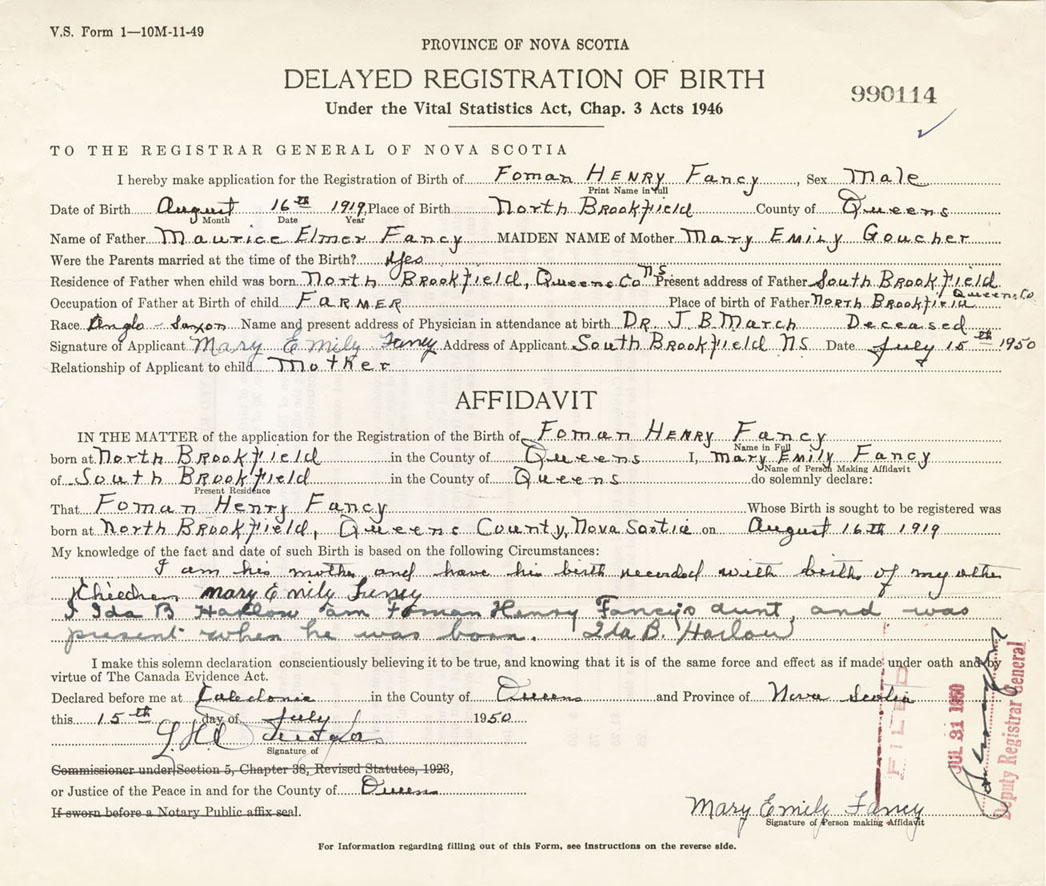 V.S. Form 1—10M-11-49
PROVINCE OF NOVA SCOTIA
DELAYED REGISTRATION OF BIRTH
990114
Under the Vital Statistics Act, Chap. 3 Acts 1946
TO THE REGISTRAR GENERAL OF NOVA SCOTIA
I hereby make application for the Registration of Birth of Foman HENRY Fancy, Sex Male
Print Name in full
Date of Birth August 16th 1919, Place of Birth North BROOKfield County of Queens
Month Date Year
Name of Father Maurice Elmer Fancy MAIDEN NAME of Mother Mary EMILY Goucher
Were the Parents married at the time of the Birth? Yes
Residence of Father when child was born North BROOKfield, Queens Co NS Present address of Father South BROOKfield Queens Co.
Occupation of Father at Birth of child FARMER Place of birth of Father NORTH BROOKfield
Race Anglo-Saxon Name and present address of Physician in attendance at birth DR. J. B. March Deceased
Signature of Applicant Mary Emily Fancy Address of Applicant South BROOKfield NS Date July 15th 1950
Relationship of Applicant to child Mother
AFFIDAVIT
IN THE MATTER of the application for the Registration of the Birth of Foman HENRY Fancy
Name in Full
born at North BROOKfield in the County of Queens I, Mary Emily Fancy
Name of Person Making Affidavit
of South BROOKfield in the County of Queens do solemnly declare:
Present Residence
That Foman Henry Fancy Whose Birth is sought to be registered was
born at North BROOKfield, Queens County, Nova Scotia on August 16th 1919
My knowledge of the fact and date of such Birth is based on the following Circumstances:
I am his mother and have his birth recorded with births of my other
Mary Emily Fancy
I Ida B Harlow am Foman Henry Fancy's aunt, and was
present when he was born. Ida B. Harlow
I make this solemn declaration conscientiously believing it to be true, and knowing that it is of the same force and effect as if made under oath and by
virtue of The Canada Evidence Act.
Declared before me at Caledonia in the County of Queens and Province of Nova Scotia
this 15th day of July 1950
Signature of
Commissioner under Section 5, Chapter 38, Revised Statutes, 1923,
or Justice of the Peace in and for the County of Queens
If sworn before a Notary Public affix seal.
Mary Emily Fancy
Signature of Person making Affidavit
FILED
JUL 31 1950
Deputy Registrar General
For Information regarding filling out of this Form, see instructions on the reverse side.